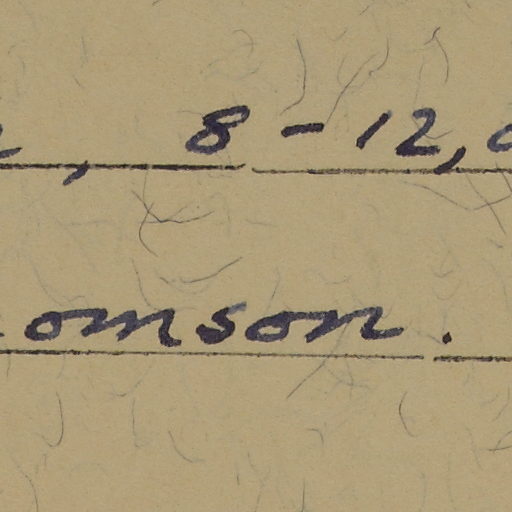 , 8-12,
omson.